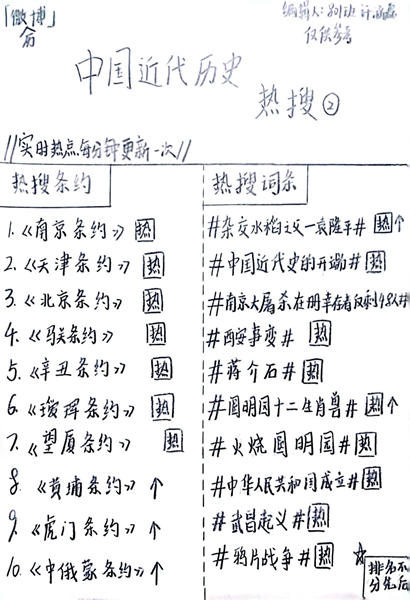 「微博」
编辑人:
仅供参考
中国近代历史
热搜②
//实时热点每分钟更新一次//
热搜条约
1.《南京条约》热
2.《天津条约》热
3.《北京条约》热
4.《马关条约》热
5.《辛丑条约》热
6.《瑷珲条约》热
7.《望厦条约》热
8.《黄埔条约》↑
9.《虎门条约》↑
10.《中俄蒙条约》↑
热搜词条
#杂交水稻之父—袁隆平#热↑
#中国近代史的开端#热
#南京大屠杀在册幸存者仅剩 人#
#西安事变#热
#蒋介石#热
#圆明园十二生肖兽#热↑
#火烧圆明园#热
#中华人民共和国成立#热
#武昌起义#热
#鸦片战争#热
☆排名不
分先后